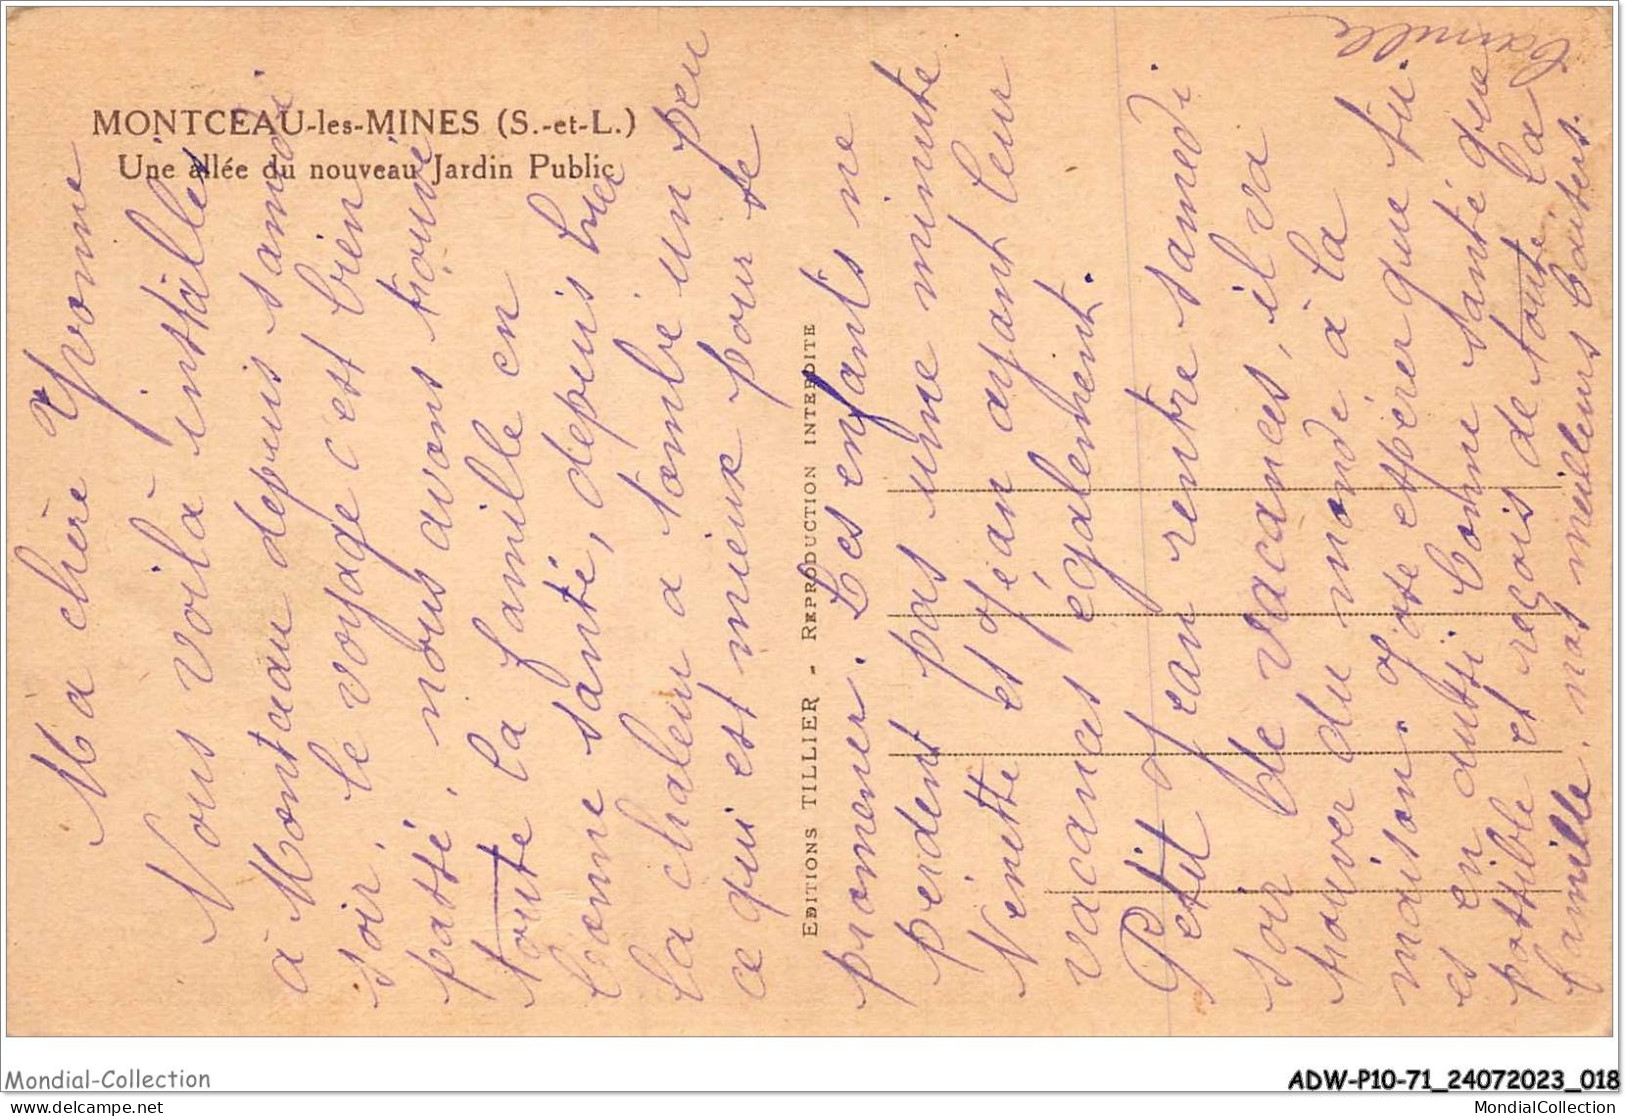 MONTCEAU-les-MINES (S.-et-L.)
Une allée du nouveau Jardin Public
EDITIONS TILLIER - REPRODUCTION INTERDITE
Ma chère Yvonne
Nous voilà installés
à Montceau depuis samedi
soir, le voyage c'est bien
passé, nous avons trouvé
toute la famille en
bonne santé, depuis hier
la chaleur a tombé un peu
ce qui est mieux pour se
promener. Les enfants ne
perdent pas une minute
Nenette et Jean ayant leur
vacances également.
Petit Jean rentre samedi
soir de vacances, il va
trouver du monde à la
maison. J'ose espérer que tu
es en aussi bonne santé que
possible et reçois de toute la
famille, nos meilleurs baisers.
Camille
Mondial-Collection
ADW-P10-71_24072023_018
delcampe.net
MondialCollection